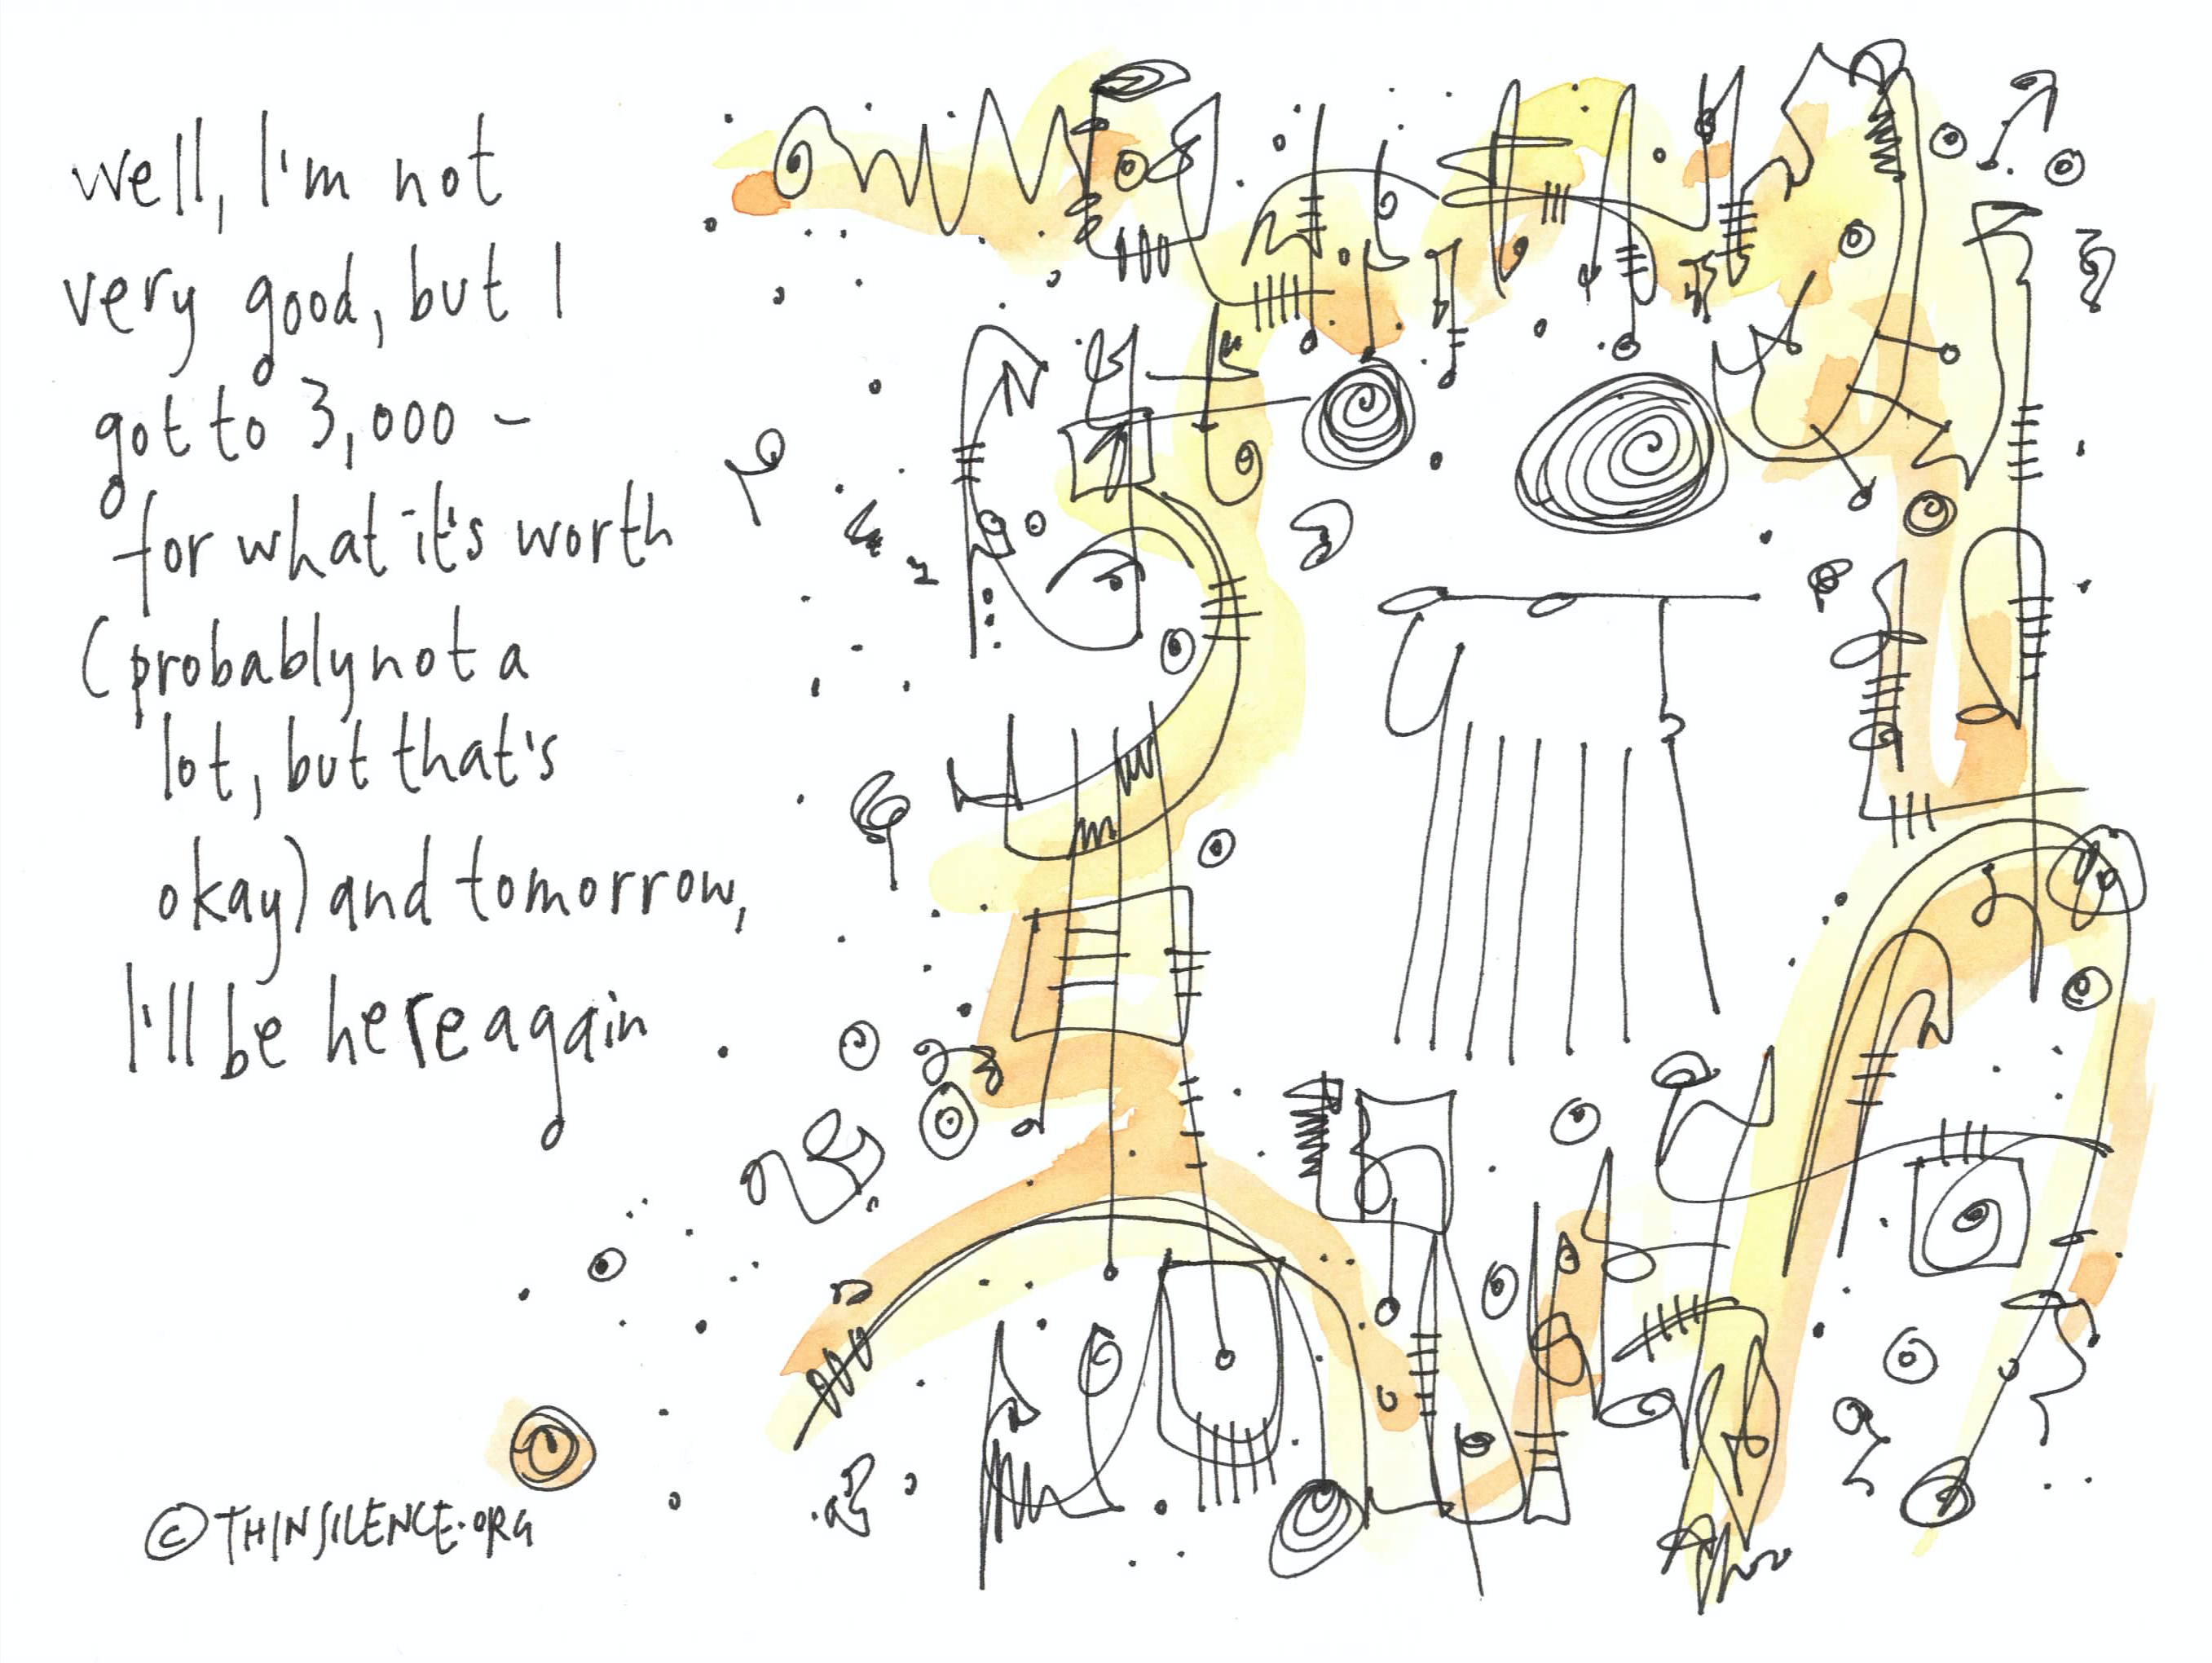 well, I'm not
very good, but I
got to 3,000 –
for what it's worth
(probably not a
lot, but that's
okay) and tomorrow,
I'll be here again
© THINSILENCE.ORG